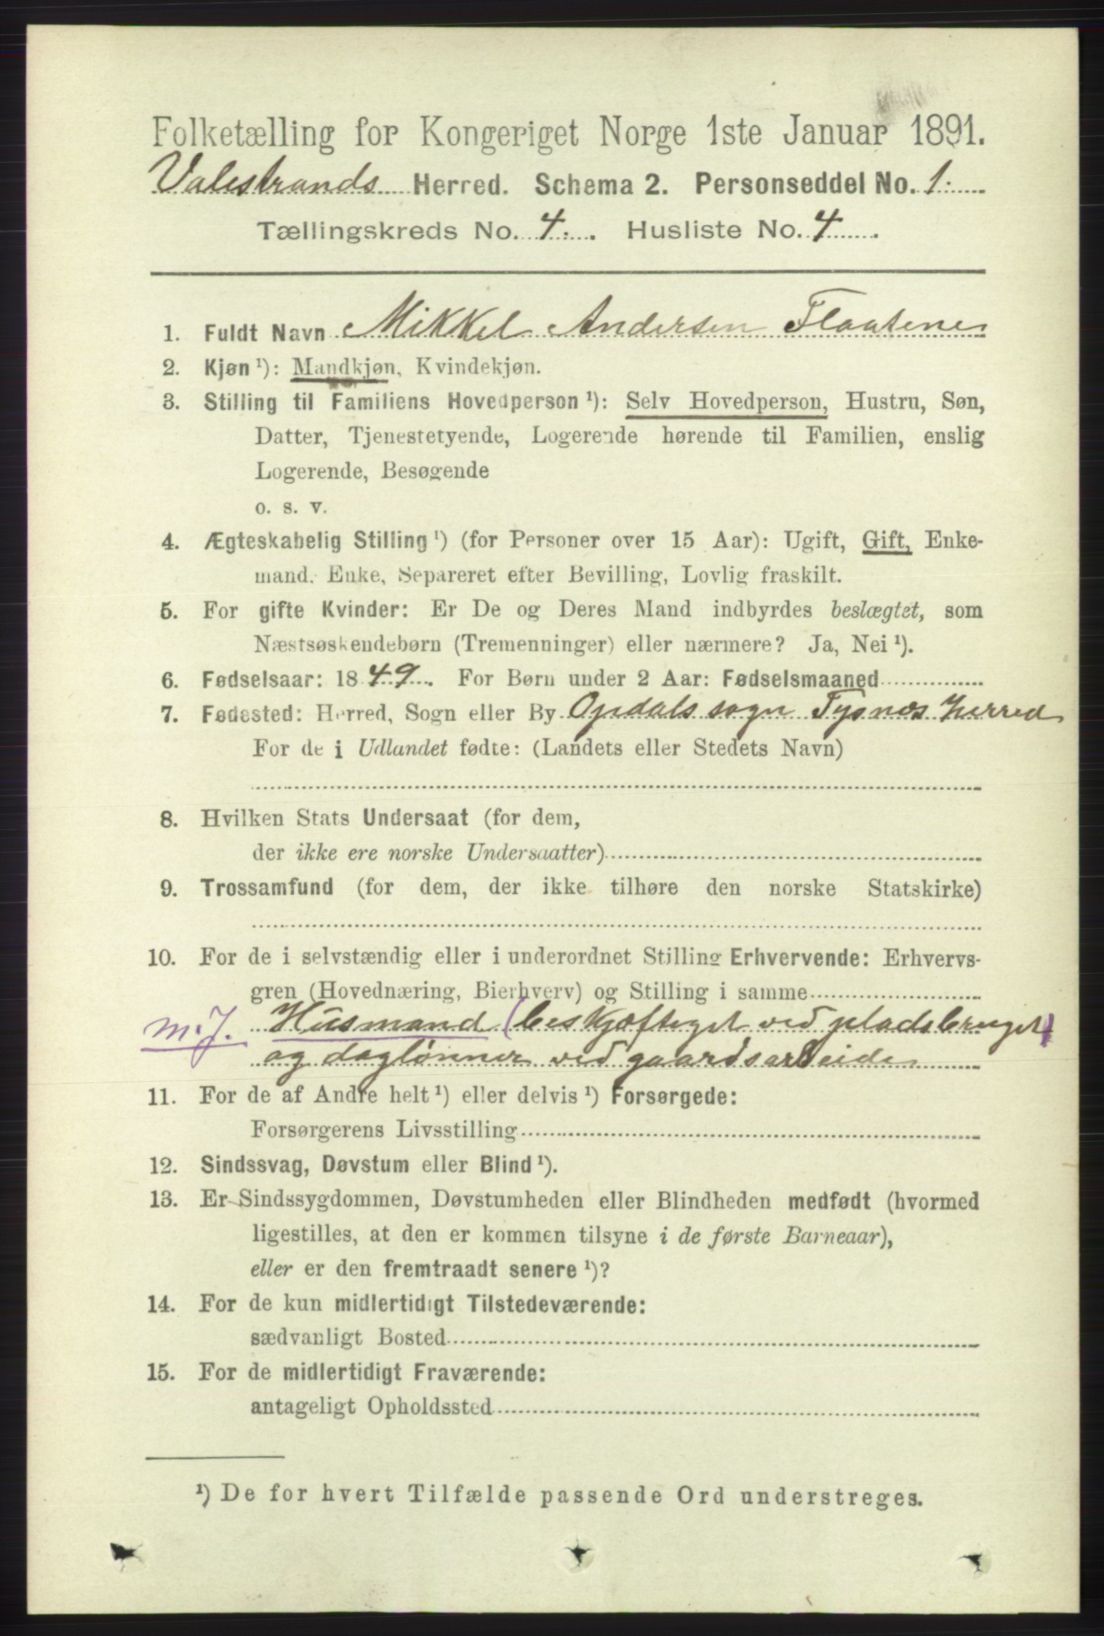 Folketælling for Kongeriget Norge 1ste Januar 1891.
Valestrands Herred. Schema 2. Personseddel No. 1.
Tællingskreds No. 4. Husliste No. 4
1. Fuldt Navn Mikkel Andersen Flaatene
2. Kjøn ¹): Mandkjøn, Kvindekjøn.
3. Stilling til Familiens Hovedperson ¹): Selv Hovedperson, Hustru, Søn,
Datter, Tjenestetyende, Logerende hørende til Familien, enslig
Logerende, Besøgende
o. s. v.
4. Ægteskabelig Stilling ¹) (for Personer over 15 Aar): Ugift, Gift, Enke-
mand, Enke, Separeret efter Bevilling, Lovlig fraskilt.
5. For gifte Kvinder: Er De og Deres Mand indbyrdes beslægtet, som
Næstsøskendebørn (Tremenninger) eller nærmere? Ja, Nei ¹).
6. Fødselsaar: 1849. For Børn under 2 Aar: Fødselsmaaned
7. Fødested: Herred, Sogn eller By Opdals sogn Tysnes herred
For de i Udlandet fødte: (Landets eller Stedets Navn)
8. Hvilken Stats Undersaat (for dem,
der ikke ere norske Undersaatter)
9. Trossamfund (for dem, der ikke tilhøre den norske Statskirke)
10. For de i selvstændig eller i underordnet Stilling Erhvervende: Erhvervs-
gren (Hovednæring, Bierhverv) og Stilling i samme
m.J. Husmand (beskjæftiget ved pladsbruget)
og dagлønner ved gaardsarbeide
11. For de af Andre helt ¹) eller delvis ¹) Forsørgede:
Forsørgerens Livsstilling
12. Sindssvag, Døvstum eller Blind ¹).
13. Er Sindssygdommen, Døvstumheden eller Blindheden medfødt (hvormed
ligestilles, at den er kommen tilsyne i de første Barneaar),
eller er den fremtraadt senere ¹)?
14. For de kun midlertidigt Tilstedeværende:
sædvanligt Bosted
15. For de midlertidigt Fraværende:
antageligt Opholdssted
¹) De for hvert Tilfælde passende Ord understreges.